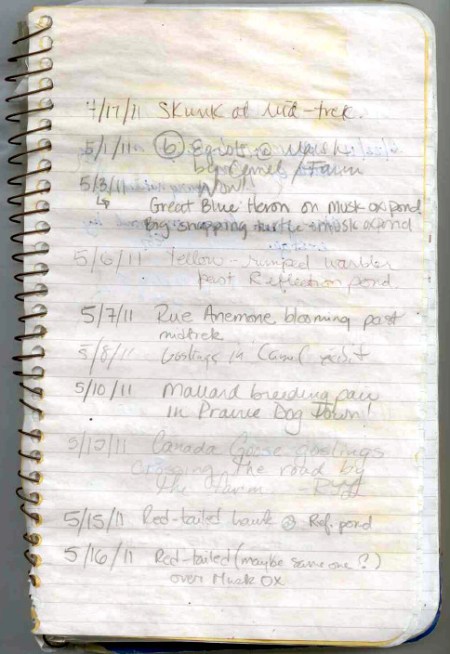 4/17/11 Skunk at mid-trek.
5/1/11 (6) Egrets @ Marsh
by Camel / Farm
5/3/11 Wow!
↳ Great Blue Heron on Musk ox pond
Big snapping turtle - musk ox pond
5/6/11 Yellow-rumped warbler
past Reflection pond
5/7/11 Rue Anemone blooming past
midtrek
5/8/11 Goslings in Camel
5/10/11 Mallard breeding pair
in Prairie Dog Town!
5/12/11 Canada Goose goslings
crossing the road by
the Farm.
5/15/11 Red-tailed hawk @ Ref. pond
5/16/11 Red-tailed (maybe same one?)
over Musk Ox